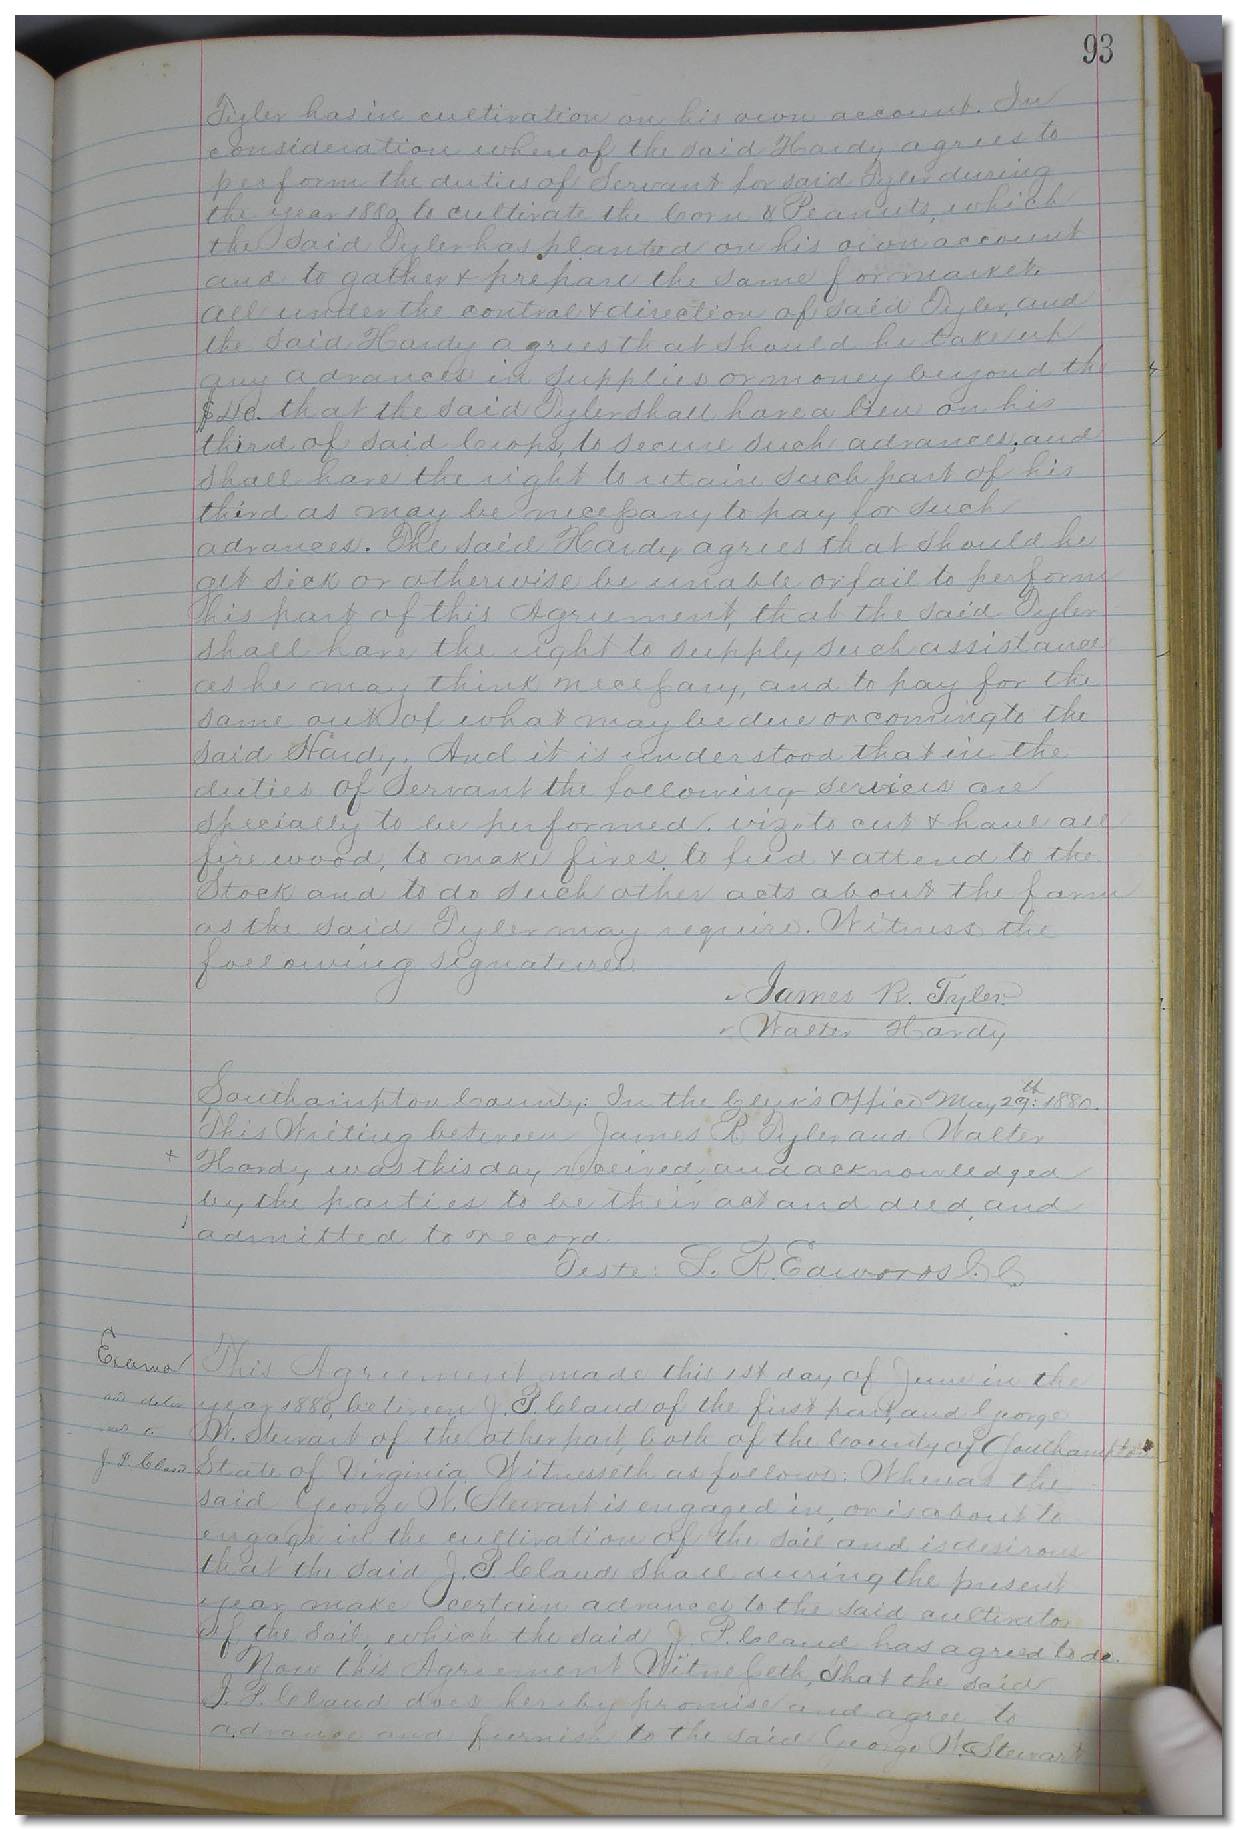 93
Tyler has in cultivation on his own account. In
consideration whereof the said Hardy agrees to
perform the duties of Servant for said Tyler during
the year 1880, to cultivate the Corn & Peanuts, which
the Said Tyler has planted on his own account
and to gather & prepare the same for market.
all under the control & direction of said Tyler, and
the Said Hardy agrees that should he take up
any advances in supplies or money beyond the
that the said Tyler shall have a lien on his
third of said Crops, to secure such advances, and
shall have the right to retain such part of his
third as may be necessary to pay for such
advances. The said Hardy agrees that should he
get sick or otherwise be unable or fail to perform
his part of this Agreement, that the said Tyler
shall have the right to supply such assistance
as he may think necessary, and to pay for the
same out of what may be due or coming to the
said Hardy. And it is understood that in the
duties of Servant the following services are
specially to be performed. viz. to cut & haul all
fire wood, to make fires, to feed & attend to the
Stock and to do such other acts about the farm
as the said Tyler may require. Witness the
following signatures.
James R. Tyler
Walter Hardy
Southampton County: In the Clerk's Office May 29th: 1880.
This Writing between James R. Tyler and Walter
Hardy was this day received, and acknowledged
by the parties to be their act and deed, and
admitted to record.
Teste: L. R. Edwards C. C.
This Agreement made this 1st day of June in the
year 1880, between J. P. Claud of the first part, and George
W. Stewart of the other part, both of the County of Southampton
State of Virginia, Witnesseth as follows: Whereas the
said George W. Stewart is engaged in, or is about to
engage in the cultivation of the soil and is desirous
that the said J. P. Claud shall during the present
year make certain advances to the said cultivator
of the Soil, which the said J. P. Claud has agreed to do.
Now this Agreement Witnesseth, That the said
J. P. Claud does hereby promise and agree to
advance and furnish to the said George W. Stewart
Examd
and delivd
J. P. Claud